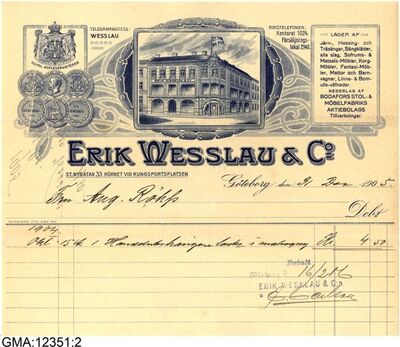 TELEGRAMADRESS:
WESSLAU
KUNGL. HOFLEVERANTÖRER
RIKSTELEFONER:
Kontoret 1024.
Försäljnings-
lokal 2140.
LAGER AF
Järn-, Messing- och
Träsängar, Sängkläder,
alla slag, Sofrums- &
Matsals-Möbler, Korg-
Möbler, Fantasi-Möb-
ler, Mattor och Barn-
vagnar, Linne- & Bom-
ulls-väfnader
NEDERLAG AF
BODAFORS STOL- &
MÖBELFABRIKS
AKTIEBOLAGS
Tillverkningar.
ERIK WESSLAU & Co.
ST. NYGATAN 33 HÖRNET VID KUNGSPORTSPLATSEN
Göteborg den 31 Dec 1905
Fru Aug. Röhss
Debet
1904
Okt. 15 1 i mahogny Kr. 4 50
Betalt
Göteborg d. 16/2 06
ERIK WESSLAU & Co.
GMA:12351:2